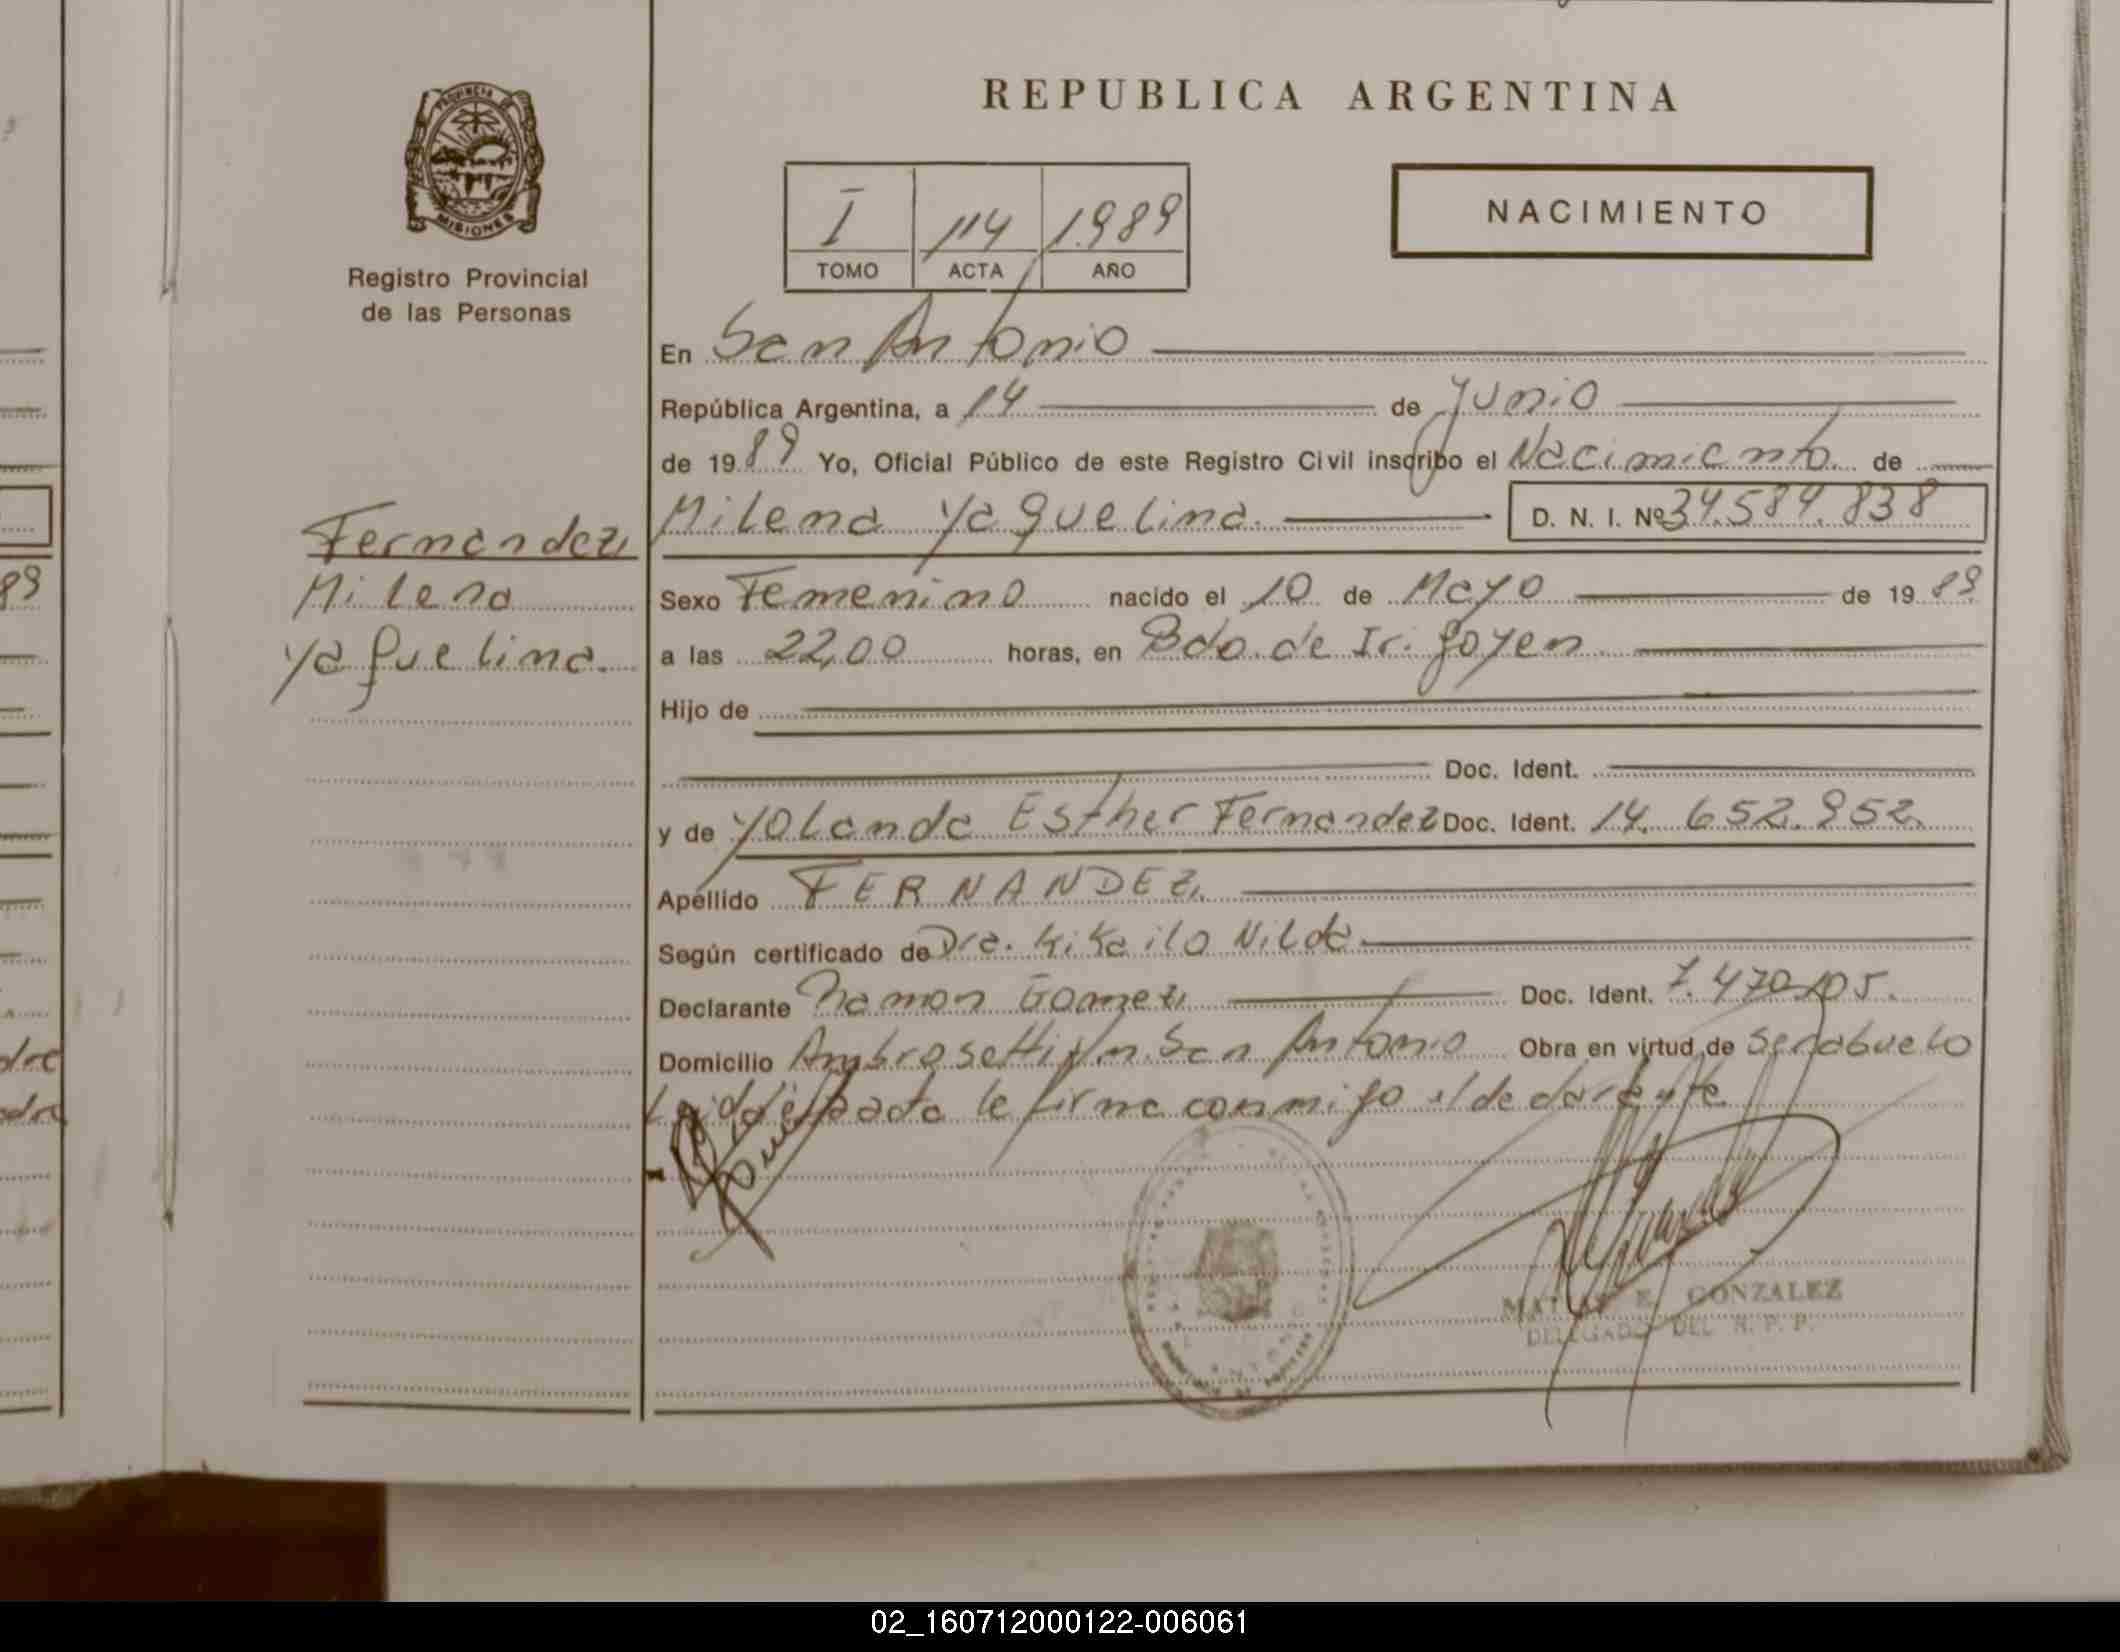 REPUBLICA ARGENTINA
PROVINCIA DE
MISIONES
Registro Provincial
de las Personas
I 114 1989
TOMO ACTA AÑO
NACIMIENTO
En San Antonio
República Argentina, a 14 de Junio
de 1989 Yo, Oficial Público de este Registro Civil inscribo el Nacimiento de
Fernandez,
Milena
Yaquelina.
Milena Yaquelina. D. N. I. Nº 34.584.838
Sexo Femenino nacido el 10 de Mayo de 1989
a las 22,00 horas, en Bdo. de Irigoyen
Hijo de
Doc. Ident.
y de Yolanda Esther Fernandez Doc. Ident. 14.652.952.
Apellido FERNANDEZ.
Según certificado de Dra. Kikailo Nilda
Declarante Ramon Gomez Doc. Ident. 7.470.105.
Domicilio Ambrosetti s/n. San Antonio Obra en virtud de ser abuelo
Leida el acta le firma conmigo el declarante
E. GONZALEZ
DELEGADO DEL R. P. P.
02_160712000122-006061